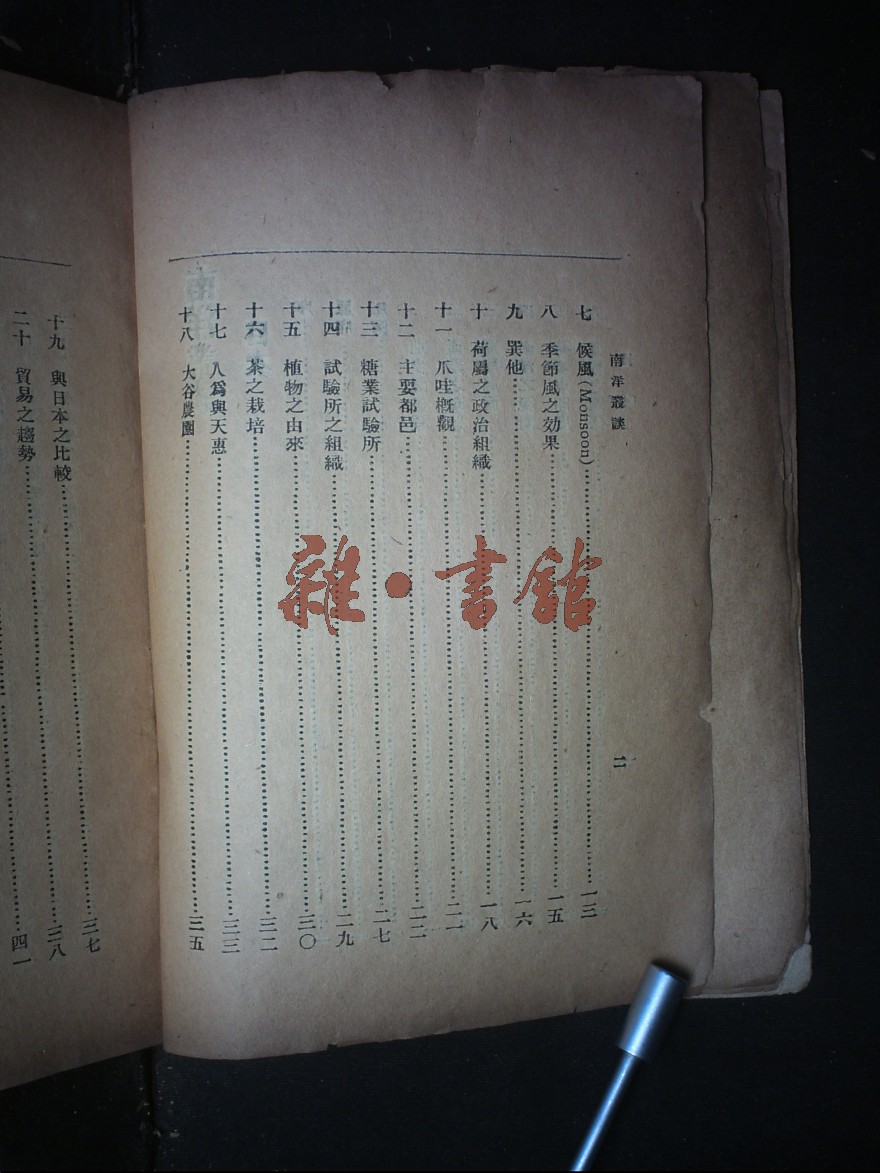 南洋叢談
二
七 候風(Monsoon)……一三
八 季節風之効果……一五
九 巽他……一六
十 荷屬之政治組織……一八
十一 爪哇槪觀……二一
十二 主要都邑……二二
十三 糖業試驗所……二七
十四 試驗所之組織……二九
十五 植物之由來……三〇
十六 茶之栽培……三二
十七 人爲與天惠……三三
十八 大谷農園……三五
十九 與日本之比較……三七
二十 貿易之趨勢……三八
四一
雜·書館